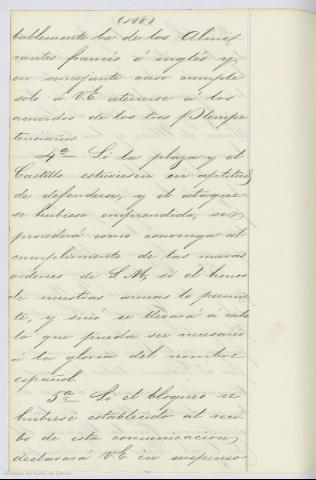 (188)
tablemente la de los Almi-
rantes francés ó inglés y,
en semejante caso cumple
solo á V.E. atenerse á los
acuerdos de los tres Plenipo
tenciarios
4ª Si la plaza y el
Castillo estuviesen en aptitud
de defenderse, y el ataque
se hubiese emprendido, se
procederá como convenga al
cumplimiento de las nuevas
ordenes de S.M, si el honor
de nuestras armas lo permi-
te, y sinó se llevará á cabo
lo que pueda ser necesario
á la gloria del nombre
español.
5ª Si el bloqueo se
hubiese establecido al reci-
bo de esta comunicacion,
declarará V.E en suspenso